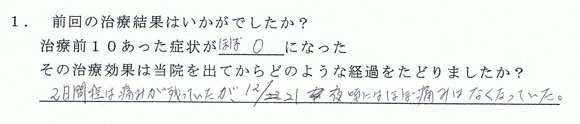 １． 前回の治療結果はいかがでしたか？
治療前１０あった症状がほぼ 0 になった
その治療効果は当院を出てからどのような経過をたどりましたか？
2日間程は痛みが残っていたが、12/21 夜頃にはほぼ痛みはなくなっていた。